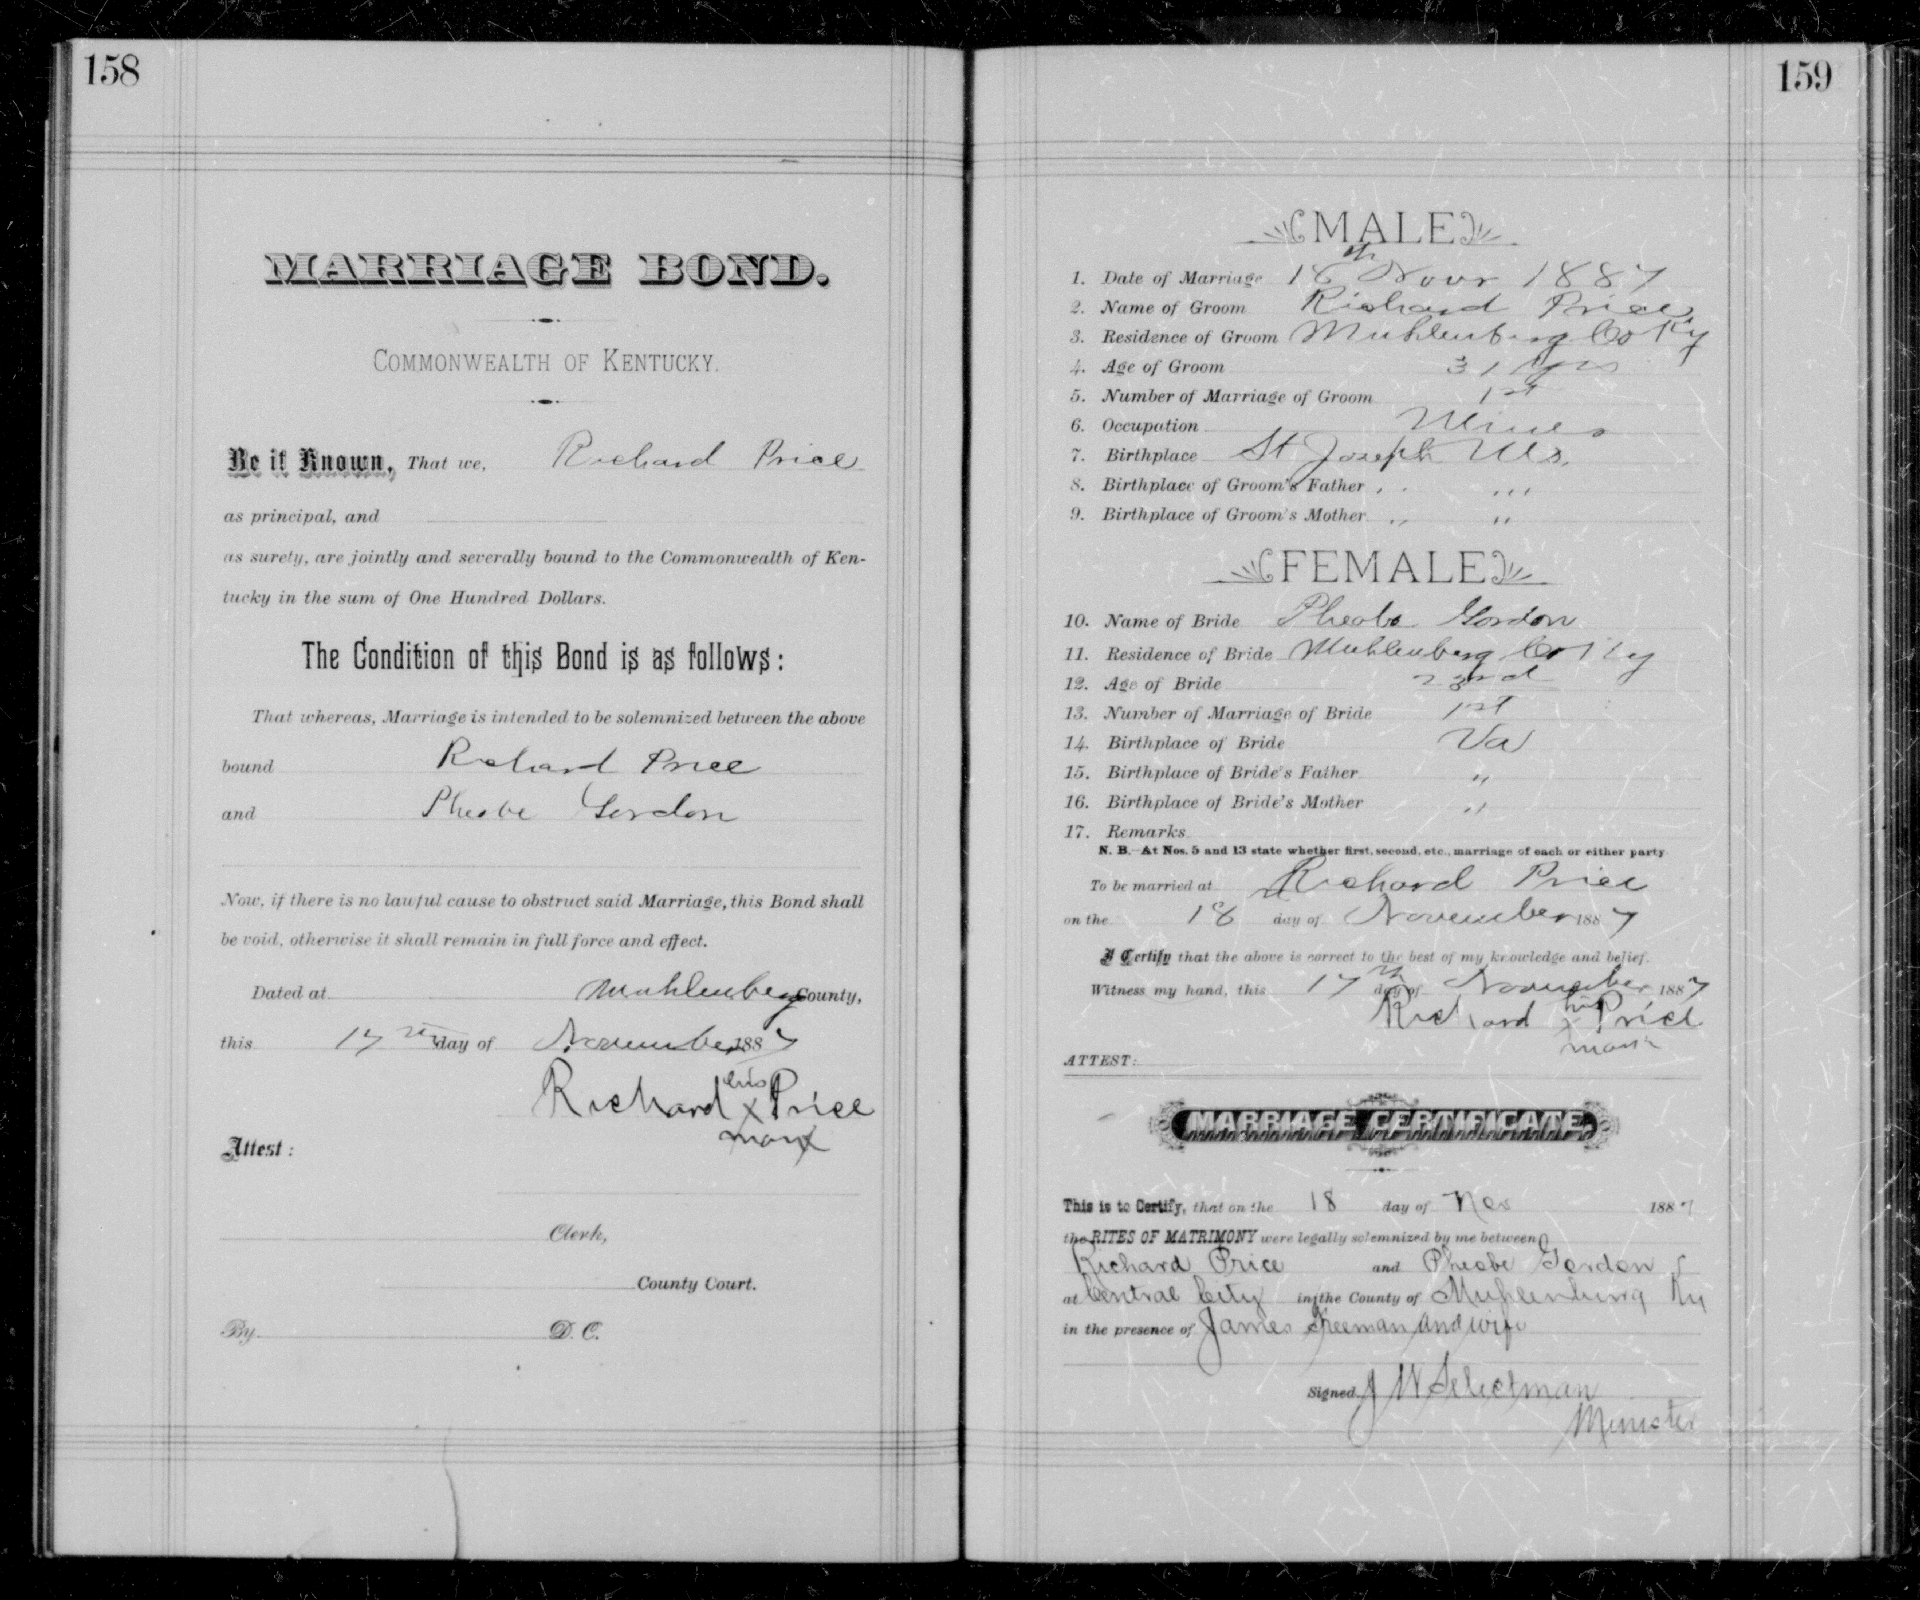 158
MARRIAGE BOND.
COMMONWEALTH OF KENTUCKY.
Be it Known, That we, Richard Price
as principal, and
as surety, are jointly and severally bound to the Commonwealth of Ken-
tucky in the sum of One Hundred Dollars.
The Condition of this Bond is as follows:
That whereas, Marriage is intended to be solemnized between the above
bound Richard Price
and Pheobe Gordon
Now, if there is no lawful cause to obstruct said Marriage, this Bond shall
be void, otherwise it shall remain in full force and effect.
Dated at Muhlenberg County,
this 17th day of November 1887
his
Richard X Price
mark
Attest:
Clerk,
County Court.
By D. C.
159
MALE
1. Date of Marriage 18th Novr 1887
2. Name of Groom Richard Price
3. Residence of Groom Muhlenberg Co Ky
4. Age of Groom 31 yrs
5. Number of Marriage of Groom 1st
6. Occupation Miner
7. Birthplace St Joseph
8. Birthplace of Groom's Father " "
9. Birthplace of Groom's Mother " "
FEMALE
10. Name of Bride Pheobe Gordon
11. Residence of Bride Muhlenberg Co Ky
12. Age of Bride 23rd
13. Number of Marriage of Bride 1st
14. Birthplace of Bride Va
15. Birthplace of Bride's Father "
16. Birthplace of Bride's Mother "
17. Remarks
N. B.—At Nos. 5 and 13 state whether first, second, etc., marriage of each or either party
To be married at Richard Price
on the 18 day of November 1887
I Certify that the above is correct to the best of my knowledge and belief.
Witness my hand, this 17th day of November 1887
his
Richard X Price
mark
ATTEST:
MARRIAGE CERTIFICATE
This is to Certify, that on the 18 day of Nov 1887
the RITES OF MATRIMONY were legally solemnized by me between
Richard Price and Pheobe Gordon
at Central City in the County of Muhlenburg Ky
in the presence of James Freeman and wife
Signed J W Selectman
Minister